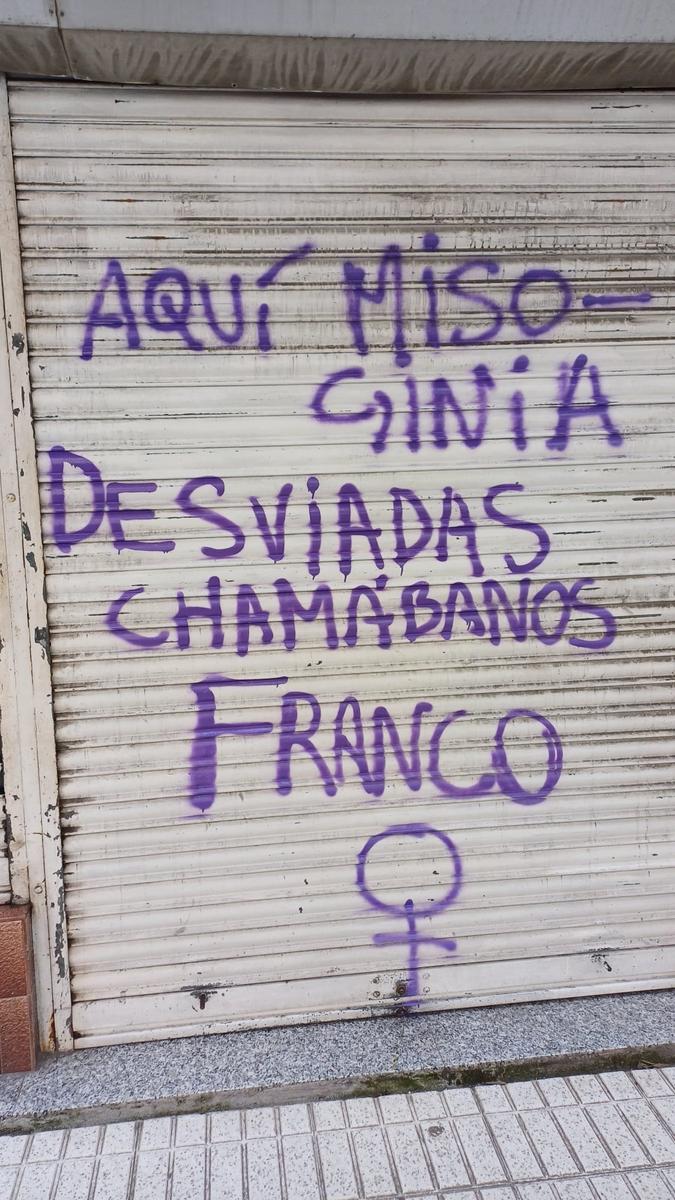 AQUÍ MISO-
GINIA
DESVIADAS
CHAMÁBANOS
FRANCO